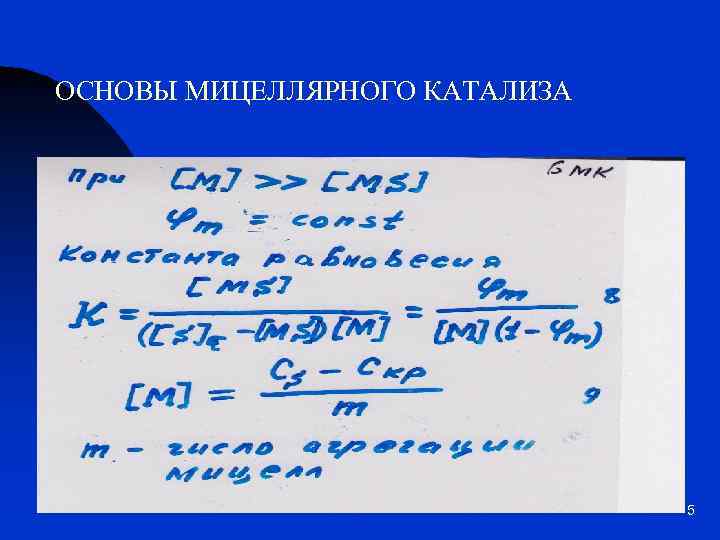 ОСНОВЫ МИЦЕЛЛЯРНОГО КАТАЛИЗА
6 МК
при [M] >> [MS]
φm = const
константа равновесия
K = [MS] / ([S]t - [MS]) [M] = φm / [M] (1 - φm) 8
[M] = Cs - Cкр / m 9
m - число агрегации
мицелл
5